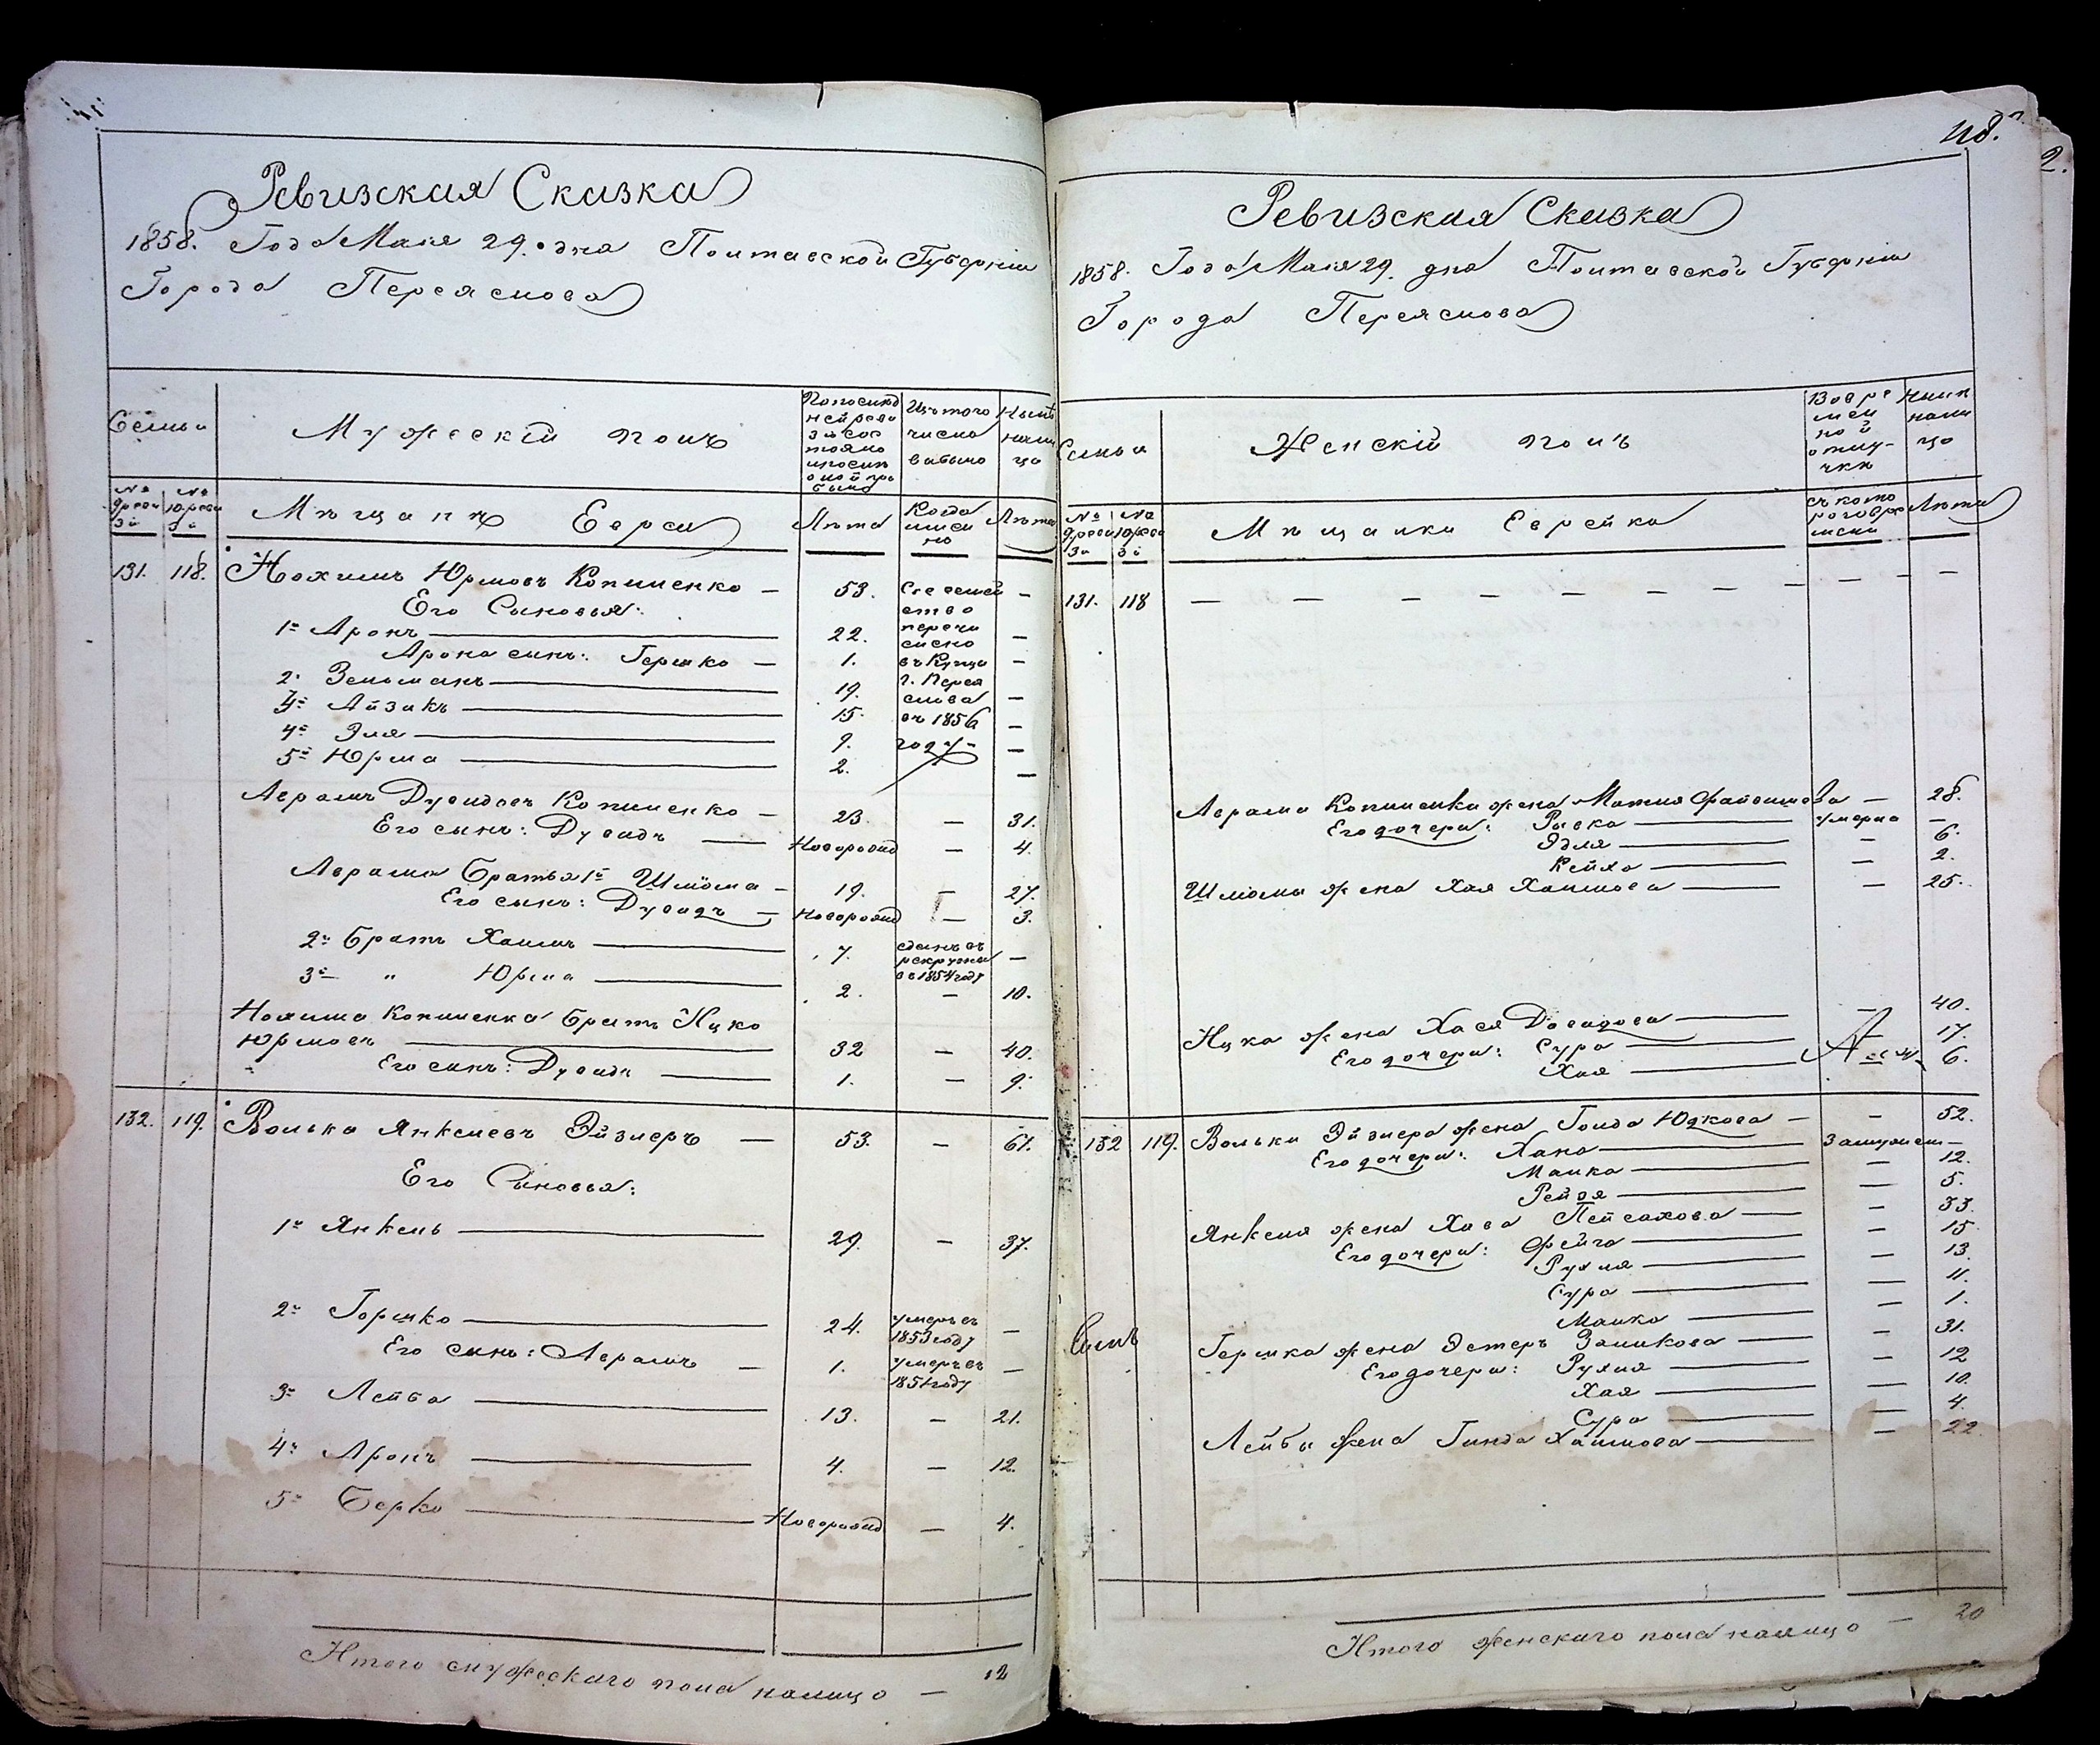 Ревизская Сказка
1858. Года Маія 29. дня Полтавской Губерніи
Города Переяслова
Семьи
Мужескій полъ
По послѣд
ней реви
зіи сос
тояло
и послѣ
оной при
было
Изъ того
числа
выбыло
Нынѣ
нали
цо
№
9 реви
зіи
№
10 реви
зіи
Мѣщанъ Евреи
Лѣта
Когда
имен
но
Лѣта
131. 118. Нохимъ Юрмовъ Копиленко — 53. Съ семей —
Его Сыновья: ство
1й Аронъ 22. перечи —
слено
Арона сынъ: Гершко — 1. въ Купцы —
2й Зельманъ 19. г. Перея —
слова
3й Айзикъ 15. въ 1856 —
4й Эля 9. году —
5й Юрма 2. —
Аврамъ Дувидовъ Копиленко — 23. — 31.
Его сынъ: Дувидъ — Новорожд — 4.
Аврама Братья 1й Шлёма — 19. — 27.
Его сынъ: Дувидъ — Новорожд — 3.
2й Братъ Хаимъ 7. сданъ въ —
рекруты
въ 1854 году
3й " Юрма 2. — 10.
Нохима Копиленка Братъ Ицко
Юрмовъ 32 — 40.
Его сынъ: Дувидъ 1. — 9.
132. 119. Волько Янкелевъ Эйзнеръ — 53. — 61.
Его Сыновья:
1й Янкель 29. — 37.
2й Гершко 24. умеръ въ —
1853 году
Его сынъ: Аврамъ — 1. умеръ въ —
1851 году
3й Лейба 13. — 21.
4й Аронъ 4. — 12.
5й Берко Новорожд — 4.
Итого мужескаго пола налицо — 12
118.
2.
Ревизская Сказка
1858. Года Маія 29. дня Полтавской Губерніи
Города Переяслова
Семьи
Женскій полъ
Во вре
мен
ной
отлу-
чкѣ
Нынѣ
нали
цо
№
9 реви
зіи
№
10 реви
зіи
Мѣщанки Еврейки
съ кото
раго вре
мени
Лѣта
131. 118 — — — — — — — — — —
Аврама Копиленки женаМатля Файвишова — 28.
Его дочери: Рывка умерла —
Эдля — 6.
Кейла — 2.
Шлёмы жена Хая Хаимова — 25.
Ицка жена Хася Довидова — 40.
Его дочери: Сура 17.
Хая 6.
132 119. Вольки Эйзнера жена Голда Юдкова — — 52.
Его дочери: Хана Замужем —
Малка — 12.
Рейзя — 5.
Янкеля жена Хава Пейсахова — 33.
Его дочери: Фейга — 15
Рухля — 13.
Сура — 11.
Малка — 1.
Гершка жена Эстеръ Заликова — 31.
Его дочери: Рухля — 12
Хая — 10.
Сура — 4.
Лейбы жена Гинда Хаимова — 22
Итого женскаго пола налицо — 20